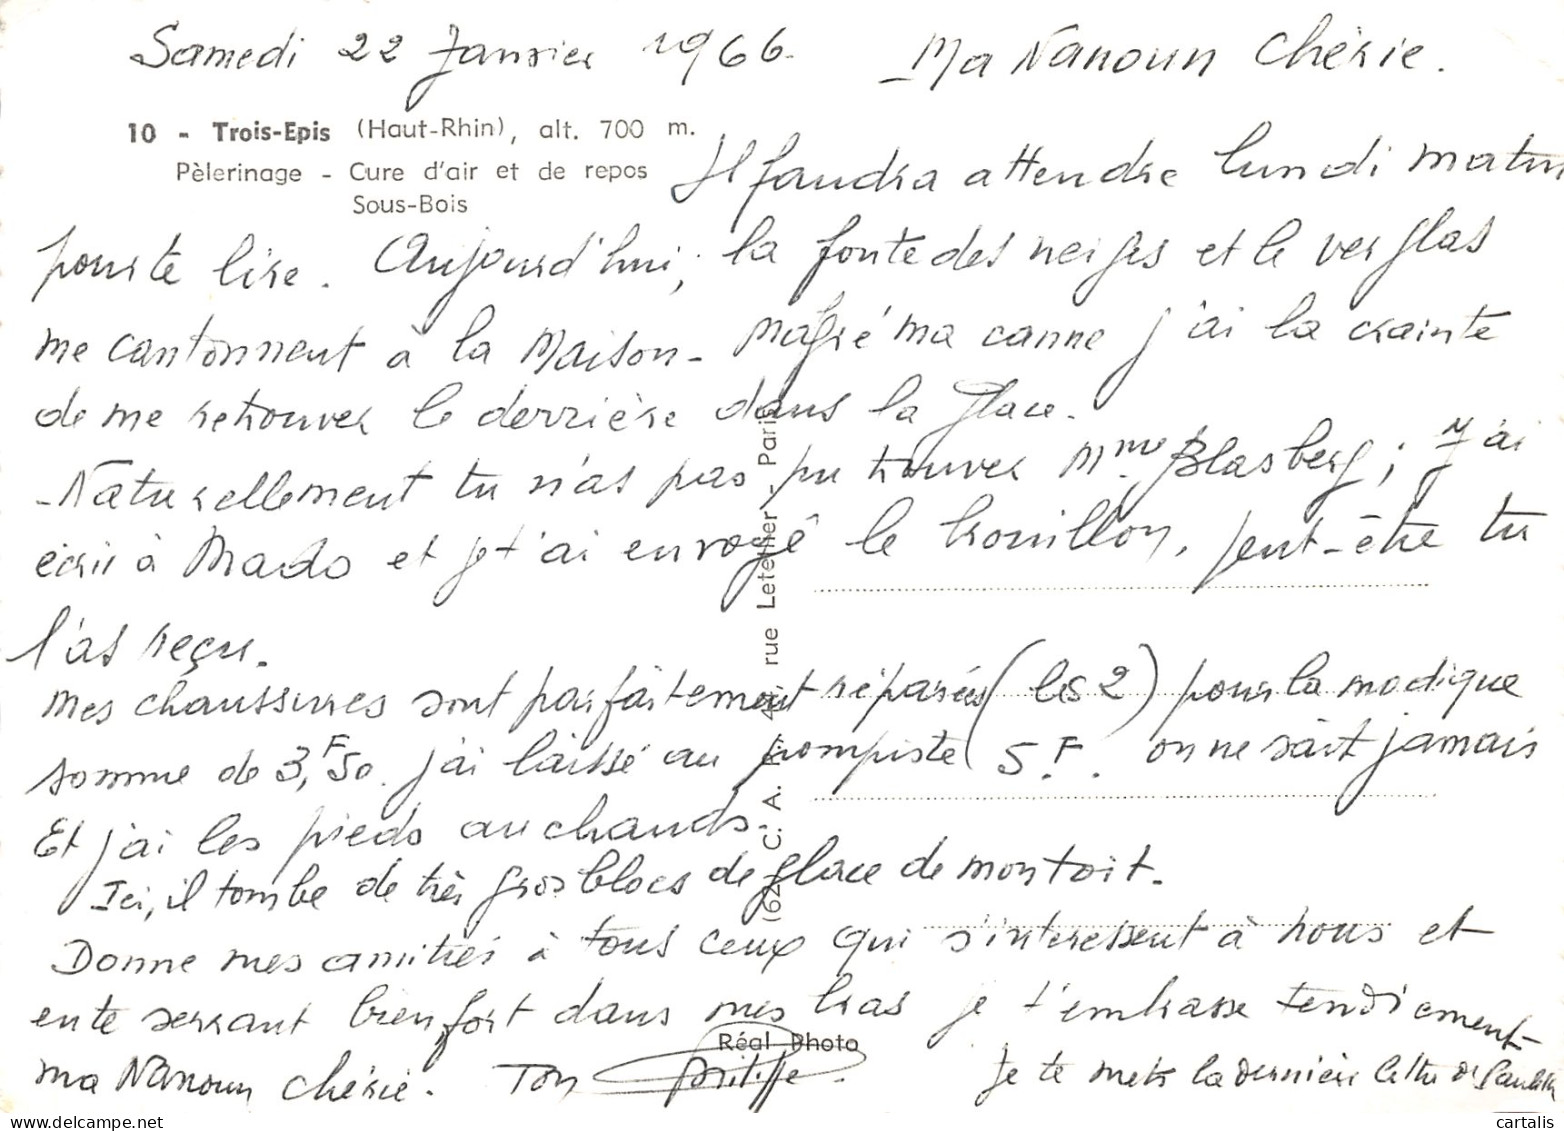 Samedi 22 Janvier 1966.
Ma Nanoun Chérie.
10 - Trois-Epis (Haut-Rhin), alt. 700 m.
Pèlerinage - Cure d'air et de repos
Sous-Bois
Il faudra attendre lundi matin
pour te lire. Aujourd'hui, la fonte des neiges et le verglas
me cantonnent à la Maison - Malgré ma canne j'ai la crainte
de me retrouver le derrière dans la glace.
- Naturellement tu n'as pas pu trouver Mme Blasberg ; J'ai
écrit à Mado et je t'ai envoyé le brouillon, peut-être tu
l'as reçu.
Mes chaussures sont parfaitement réparées (les 2) pour la modique
somme de 3,F50. J'ai laissé au pompiste 5.F. on ne sait jamais
Et j'ai les pieds au chauds.
Ici, il tombe de très gros blocs de glace de mon toit.
Donne mes amitiés à tous ceux qui s'intéressent à nous et
en te serrant bien fort dans mes bras je t'embrasse tendrement
ma Nanoun chérie. Ton
Je te mets la dernière lettre de
(62) C. A. P. 44, rue Letellier - Paris
Réal Photo
cartalis